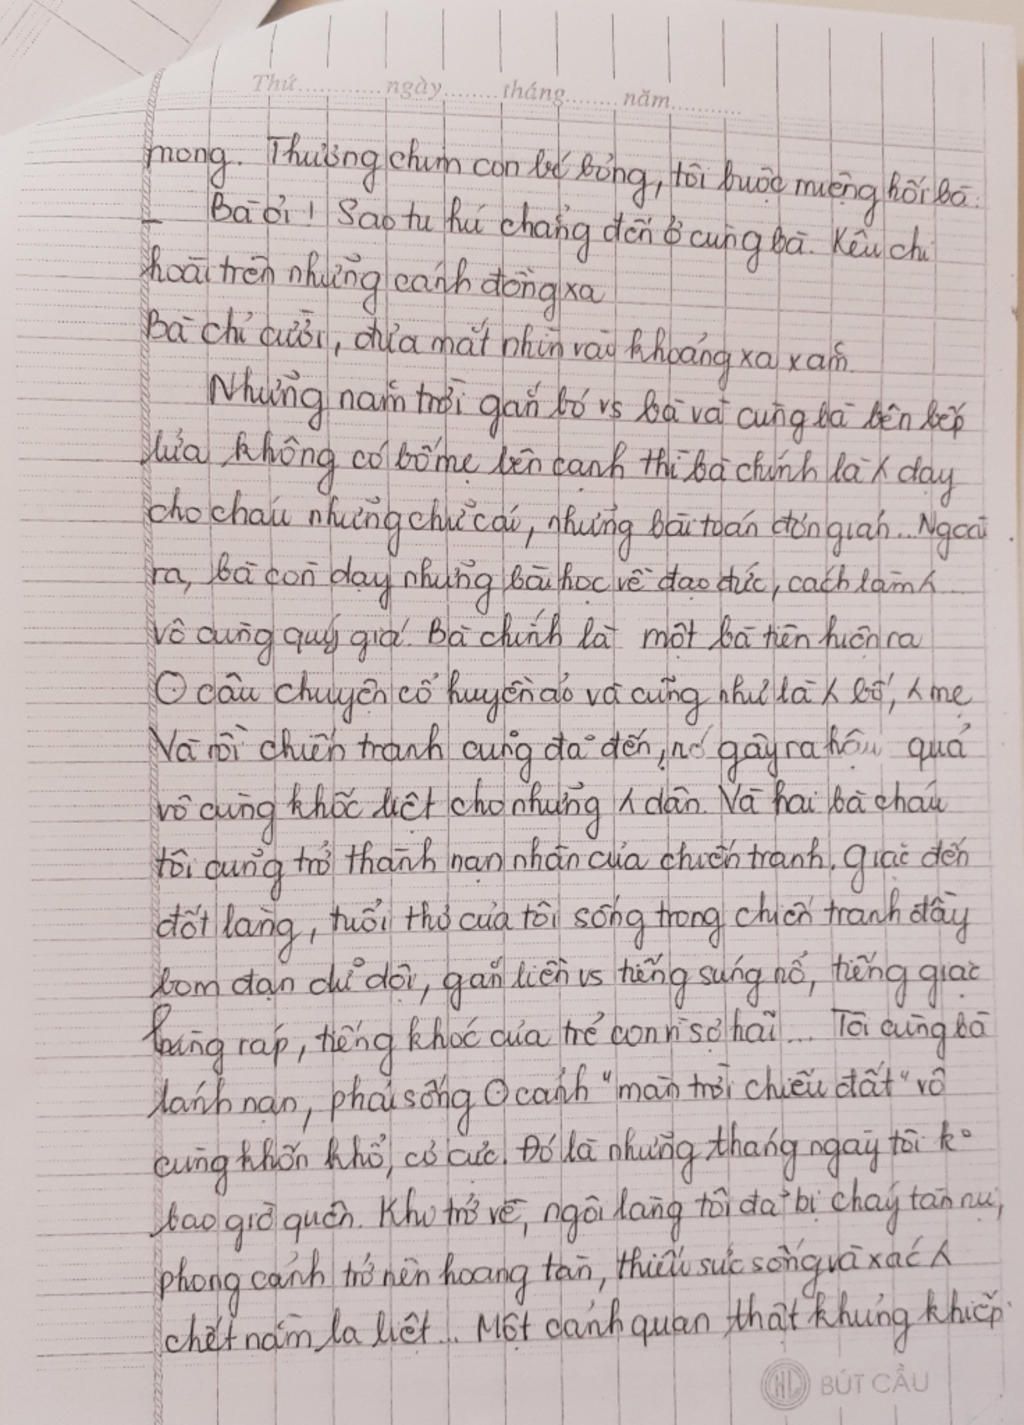 Thứ............ngày........tháng........năm..........
mong. Thương chùm con bé bỏng, tôi buộc miệng hỏi bà:
– Bà ơi! Sao tu hú chẳng đến ở cùng bà. Kêu chi
hoài trên những cánh đồng xa
Bà chỉ cười, đưa mắt nhìn vào khoảng xa xăm.
Những năm trời gắn bó vs bà và cùng bà bên bếp
lửa không có bố mẹ bên cạnh thì bà chính là ʎ dạy
cho cháu những chữ cái, những bài toán đơn giản... Ngoài
ra, bà còn dạy những bài học về đạo đức, cách làm ʎ
vô cùng quý giá. Bà chính là một bà tiên hiện ra
⊙ câu chuyện cổ huyền ảo và cũng như là ʎ bố, ʎ mẹ
Và rồi chiến tranh cũng đã đến, nó gây ra hậu quả
vô cùng khốc liệt cho những ʎ dân. Và hai bà cháu
tôi cũng trở thành nạn nhân của chiến tranh. Giặc đến
đốt làng, tuổi thơ của tôi sống trong chiến tranh đầy
bom đạn dữ dội, gắn liền vs tiếng súng nổ, tiếng giặc
lùng ráp, tiếng khóc của trẻ con vì sợ hãi... Tôi cùng bà
lánh nạn, phải sống ⊙ cảnh "màn trời chiếu đất" vô
cùng khốn khổ, cơ cực. Đó là những tháng ngày tôi k°
bao giờ quên. Khi trở về, ngôi làng tôi đã bị cháy tàn nụi,
phong cảnh trở nên hoang tàn, thiếu sức sống và xác ʎ
chết nằm la liệt... Một cảnh quan thật khủng khiếp.
HL BÚT CẦU